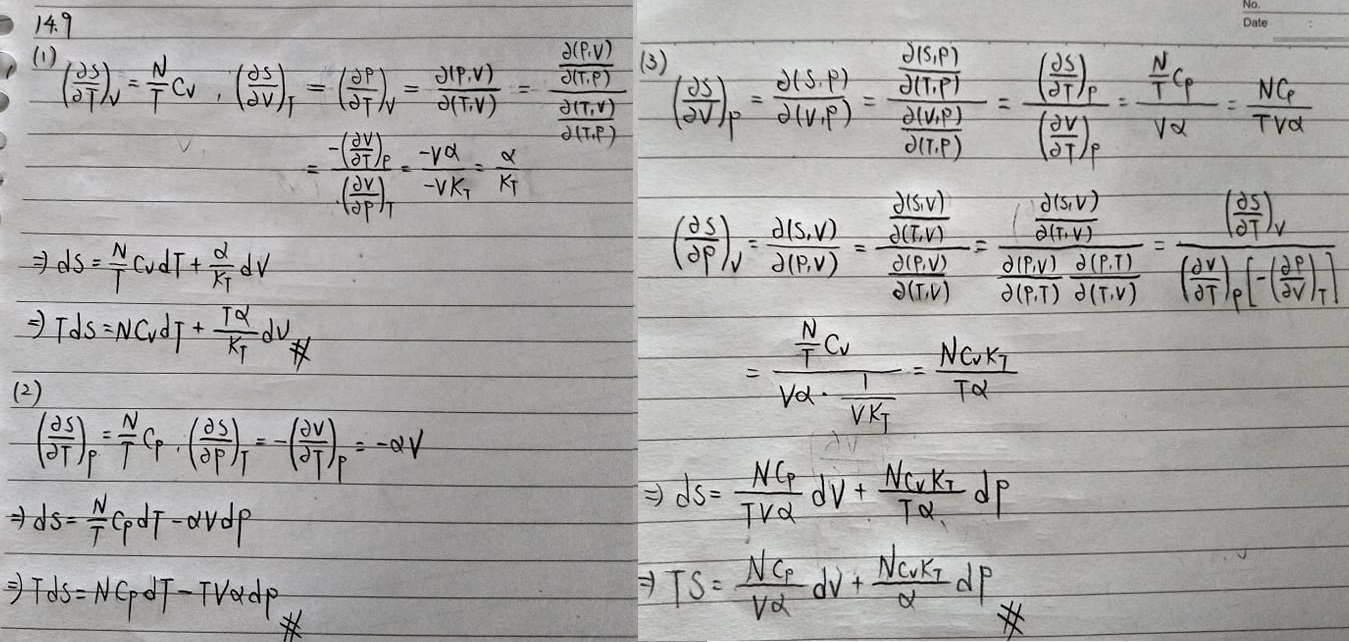 14.9
(1) (∂S/∂T)_V = N/T C_V , (∂S/∂V)_T = (∂P/∂T)_V = ∂(P,V)/∂(T,V) = (∂(P,V)/∂(T,P))/(∂(T,V)/∂(T,P))
= (-(∂V/∂T)_P)/((∂V/∂P)_T) = (-Vα)/(-VK_T) = α/K_T
⇒ dS = N/T C_V dT + α/K_T dV
⇒ TdS = NC_V dT + Tα/K_T dV #
(2)
(∂S/∂T)_P = N/T C_P , (∂S/∂P)_T = -(∂V/∂T)_P = -αV
⇒ dS = N/T C_P dT - αVdP
⇒ TdS = NC_P dT - TVαdP #
No.
Date :
(3) (∂S/∂V)_P = ∂(S,P)/∂(V,P) = (∂(S,P)/∂(T,P))/(∂(V,P)/∂(T,P)) = ((∂S/∂T)_P)/((∂V/∂T)_P) = (N/T C_P)/(Vα) = NC_P/(TVα)
(∂S/∂P)_V = ∂(S,V)/∂(P,V) = (∂(S,V)/∂(T,V))/(∂(P,V)/∂(T,V)) = (∂(S,V)/∂(T,V))/(∂(P,V)/∂(P,T) ∂(P,T)/∂(T,V)) = ((∂S/∂T)_V)/((∂V/∂T)_P [-(∂P/∂V)_T])
= (N/T C_V)/(Vα · 1/(VK_T)) = NC_V K_T/(Tα)
⇒ dS = NC_P/(TVα) dV + NC_V K_T/(Tα) dP
⇒ TS = NC_P/(Vα) dV + NC_V K_T/α dP #